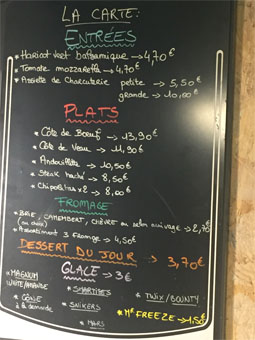 LA CARTE:
ENTRÉES
* Haricot vert balsamique → 4,70€
* Tomate mozzarella → 4,70€
* Assiette de Charcuterie petite → 5,50€
grande → 10,00€
PLATS
* Côte de Boeuf → 13,90€
* Côte de Veau → 11,90€
* Andouillette → 10,50€
* Steak haché → 8,50€
* Chipolatas x2 → 8,00€
FROMAGE
* BRIE, CAMEMBERT, CHÈVRE ou selon arrivage → 2,70€
(au choix)
* Assortiment 3 fromage → 4,50€
DESSERT DU JOUR → 3,70€
GLACE → 3€
* MAGNUM
WHITE/AMANDE
* SMARTIES
* TWIX/BOUNTY
* CÔNE
à la demande
* SNIKERS
* MARS
* Mr FREEZE → 1.50€